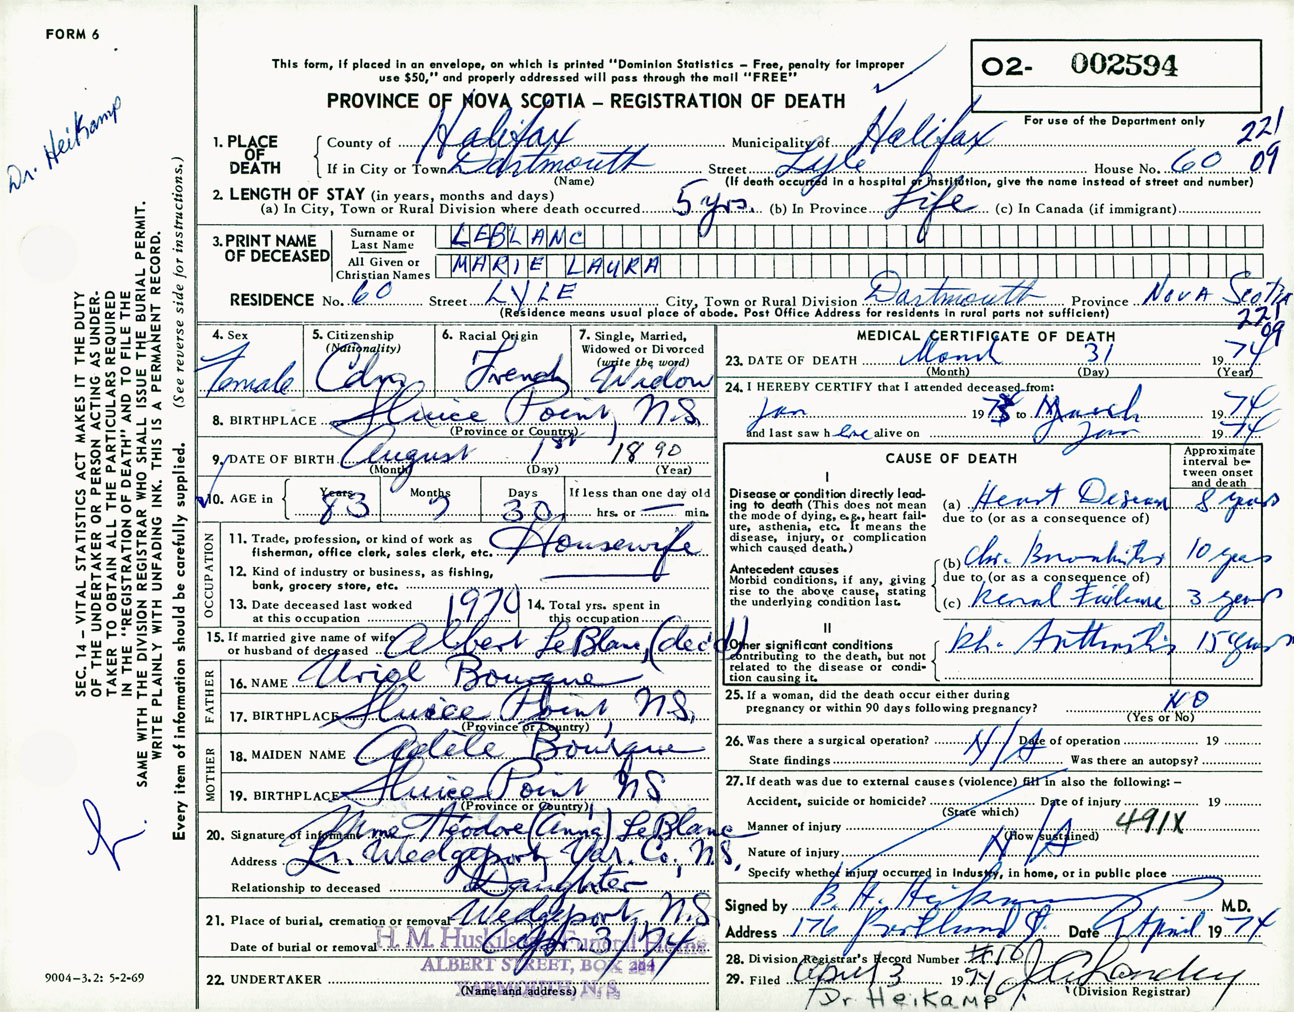 FORM 6
Dr. Heikamp
This form, if placed in an envelope, on which is printed "Dominion Statistics – Free, penalty for improper
use $50," and properly addressed will pass through the mail "FREE"
PROVINCE OF NOVA SCOTIA – REGISTRATION OF DEATH
O2- 002594
For use of the Department only
221
09
1. PLACE OF DEATH
County of Halifax Municipality of Halifax
If in City or Town Dartmouth Street Lyle House No. 60
(Name) (If death occurred in a hospital or institution, give the name instead of street and number)
2. LENGTH OF STAY (in years, months and days)
(a) In City, Town or Rural Division where death occurred 5 yrs. (b) In Province Life (c) In Canada (if immigrant)
3. PRINT NAME OF DECEASED
Surname or Last Name LEBLANC
All Given or Christian Names MARIE LAURA
RESIDENCE No. 60 Street LYLE City, Town or Rural Division Dartmouth Province NOVA Scotia
(Residence means usual place of abode. Post Office Address for residents in rural parts not sufficient)
221
09
4. Sex Female
5. Citizenship (Nationality) Cdn
6. Racial Origin French
7. Single, Married, Widowed or Divorced (write the word) Widow
8. BIRTHPLACE Sluice Point, N.S.
(Province or Country)
9. DATE OF BIRTH August 1st 1890
(Month) (Day) (Year)
10. AGE in Years 83 Months 7 Days 30 If less than one day old
hrs. or — min.
OCCUPATION
11. Trade, profession, or kind of work as
fisherman, office clerk, sales clerk, etc. Housewife
12. Kind of industry or business, as fishing,
bank, grocery store, etc.
13. Date deceased last worked
at this occupation 1970
14. Total yrs. spent in
this occupation
15. If married give name of wife
or husband of deceased Albert LeBlanc (dec'd)
FATHER
16. NAME Uriel Bourque
17. BIRTHPLACE Sluice Point, N.S.
(Province or Country)
MOTHER
18. MAIDEN NAME Adèle Bourque
19. BIRTHPLACE Sluice Point, NS
(Province or Country)
20. Signature of informant Mme Théodore (Anna) LeBlanc
Address Lr. Wedgeport, Yar. Co., N.S.
Relationship to deceased Daughter
21. Place of burial, cremation or removal Wedgeport, N.S.
Date of burial or removal Apr 3/74
H. M. Huskilson Funeral Home
ALBERT STREET, BOX 284
YARMOUTH, N. S.
22. UNDERTAKER
(Name and address)
MEDICAL CERTIFICATE OF DEATH
23. DATE OF DEATH March 31 1974
(Month) (Day) (Year)
24. I HEREBY CERTIFY that I attended deceased from:
Jan 1973 to March 1974
and last saw her alive on Jan 1974
CAUSE OF DEATH
Approximate interval between onset and death
I
Disease or condition directly leading to death (This does not mean the mode of dying, e.g., heart failure, asthenia, etc. It means the disease, injury, or complication which caused death.)
(a) Heart Disease 8 years
due to (or as a consequence of)
Antecedent causes
Morbid conditions, if any, giving rise to the above cause, stating the underlying condition last.
(b) Chr. Bronchitis 10 years
due to (or as a consequence of)
(c) Renal Failure 3 years
II
Other significant conditions
contributing to the death, but not related to the disease or condition causing it.
Rh. Arthritis 15 years
25. If a woman, did the death occur either during
pregnancy or within 90 days following pregnancy? NO
(Yes or No)
26. Was there a surgical operation? N/A Date of operation 19
State findings Was there an autopsy?
27. If death was due to external causes (violence) fill in also the following: –
Accident, suicide or homicide? Date of injury 19
(State which)
Manner of injury 491X
(How sustained)
Nature of injury N/A
Specify whether injury occurred in Industry, in home, or in public place
Signed by B. H. Heikamp M.D.
Address 176 Portland St. Date 2 April 1974
28. Division Registrar's Record Number #10
29. Filed April 3 1974
(Division Registrar)
Dr Heikamp
SEC. 14 – VITAL STATISTICS ACT MAKES IT THE DUTY
OF THE UNDERTAKER OR PERSON ACTING AS UNDER-
TAKER TO OBTAIN ALL THE PARTICULARS REQUIRED
IN THE "REGISTRATION OF DEATH" AND TO FILE THE
SAME WITH THE DIVISION REGISTRAR WHO SHALL ISSUE THE BURIAL PERMIT.
WRITE PLAINLY WITH UNFADING INK. THIS IS A PERMANENT RECORD.
Every item of information should be carefully supplied. (See reverse side for instructions.)
9004-3.2: 5-2-69